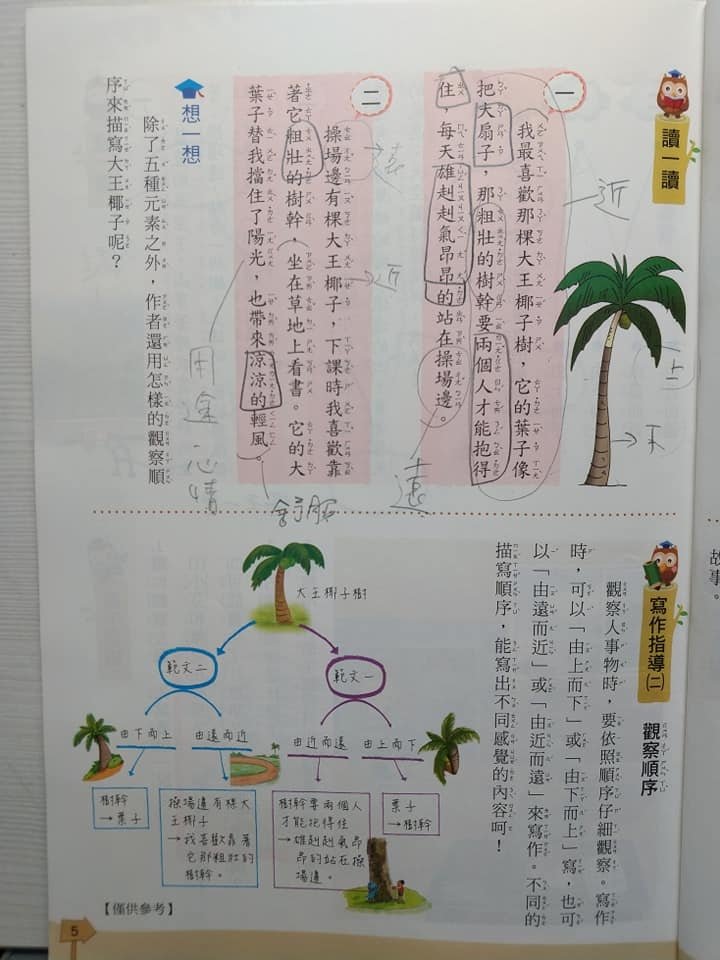 讀一讀
一
我最喜歡那棵大王椰子樹，它的葉子像
把大扇子，那粗壯的樹幹要兩個人才能抱得
住，每天雄赳赳氣昂昂的站在操場邊。
近
遠
上
下
二
操場邊有棵大王椰子，下課時我喜歡靠
著它粗壯的樹幹，坐在草地上看書。它的大
葉子替我擋住了陽光，也帶來涼涼的輕風。
遠
近
用途
心情
舒服
想一想
除了五種元素之外，作者還用怎樣的觀察順
序來描寫大王椰子呢？
寫作指導(二)
觀察順序
觀察人事物時，要依照順序仔細觀察。寫作
時，可以「由上而下」或「由下而上」寫，也可
以「由遠而近」或「由近而遠」來寫作。不同的
描寫順序，能寫出不同感覺的內容呵！
大王椰子樹
範文一
由上而下
葉子
→樹幹
由近而遠
樹幹要兩個人
才能抱得住
→雄赳赳氣昂
昂的站在操
場邊。
範文二
由遠而近
操場邊有棵大
王椰子
→我喜歡靠著
它那粗壯的
樹幹。
由下而上
樹幹
→葉子
【僅供參考】
5
故事。